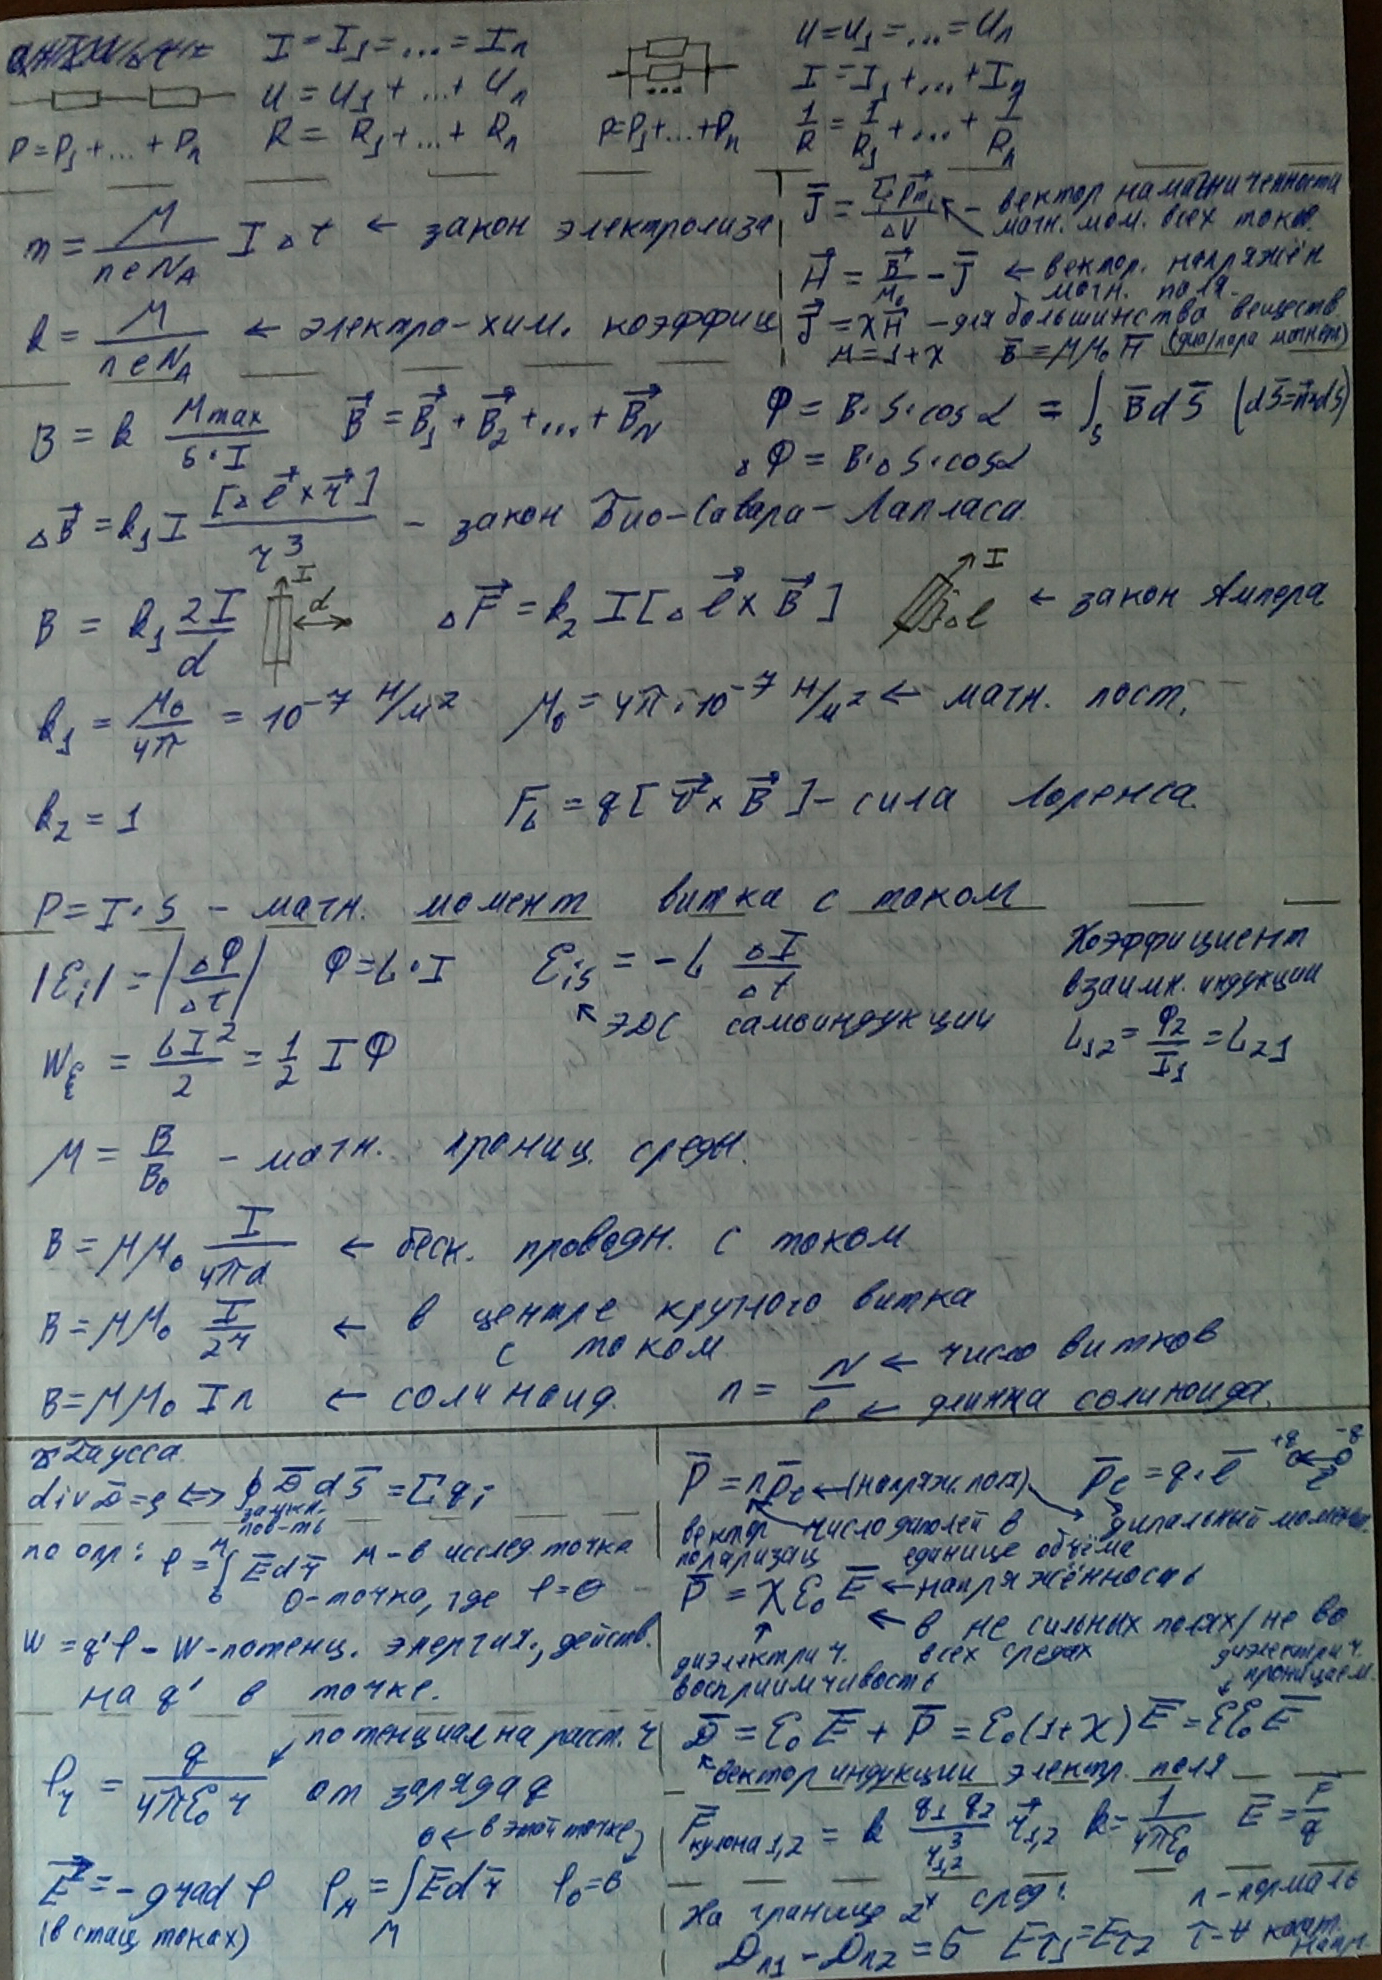 I = I₁ = ... = Iₙ
U = U₁ + ... + Uₙ
R = R₁ + ... + Rₙ
P = P₁ + ... + Pₙ
P = P₁ + ... + Pₙ
U = U₁ = ... = Uₙ
I = I₁ + ... + Iₙ
1/R = 1/R₁ + ... + 1/Rₙ
m = M/(neN_A) I Δt ← закон электролиза
k = M/(neN_A) ← электро-хим. коэффиц
J̄ = Σp⃗mᵢ/ΔV – вектор намагниченности
магн. мом. всех токов.
H⃗ = B⃗/μ₀ − J̄ ← вектор. напряжён
магн. поля.
J⃗ = χH⃗ – для большинства веществ
μ = 1 + χ B̄ = μμ₀H̄ (диа/пара магнет)
B = k Mmax/(S·I) B⃗ = B⃗₁ + B⃗₂ + ... + B⃗N
Φ = B·S·cosα = ∫ₛ B̄dS̄ (dS̄ = n⃗·dS)
ΔΦ = B·ΔS·cosα
ΔB⃗ = k₁I [Δl⃗ × r⃗]/r³ – закон Био-Савара-Лапласа
B = k₁ 2I/d I d ΔF⃗ = k₂ I [Δl⃗ × B⃗] I Δl ← закон Ампера
k₁ = μ₀/4π = 10⁻⁷ Н/м² μ₀ = 4π·10⁻⁷ Н/м² ← магн. пост.
k₂ = 1 F_L = q[v⃗ × B⃗] – сила Лоренса
P = I·S – магн. момент витка с током
|Ɛi| = |ΔΦ/Δt| Φ = L·I Ɛis = −L ΔI/Δt
↖ ЭДС самоиндукции
Коэффициент
взаимн. индукции
L₁₂ = Φ₂/I₁ = L₂₁
Wε = LI²/2 = 1/2 IΦ
μ = B/B₀ – магн. прониц. среды.
B = μμ₀ I/4πd ← беск. проводн. с током
B = μμ₀ I/2r ← в центре круглого витка
с током
B = μμ₀In ← солинаид. n = N/l ← число витков
← длинна солиноида.
Гаусса
divD̄ = ρ ⇔ ∮D̄dS̄ = Σqᵢ
замкн.
пов-ть
по опр: φ = ∫Ēdr̄ М – в исслед. точка
0 – точка, где φ = 0
W = q'φ – W – потенц. энергия, действ.
на q' в точке.
φr = q/4πε₀r потенциал на расст. r
от заряда q
E⃗ = −grad φ
(в стац токах)
φM = ∫Ēdr̄ 0 ← в этой точке φ₀ = 0
M
P̄ = np̄e ← (напряж. поля) p̄e = q·l̄ +q −q
вектор поляризац
число диполей в
единице объёма
дипальный момент.
P̄ = χε₀Ē ← напряжённость
← в не сильных полях/не во
всех средах
диэлектрич.
восприимчивость
диэлектрич.
проницаем.
D̄ = ε₀Ē + P̄ = ε₀(1+χ)Ē = εε₀Ē
вектор индукции электр. поля
F̄кулона1,2 = k q₁q₂/r₁,₂³ r⃗₁,₂ k = 1/4πε₀ Ē = F̄/q
На границе 2ˣ сред: n – нормаль
Dn₁ − Dn₂ = σ Eτ₁ = Eτ₂ τ – ∀ касат.
напр.